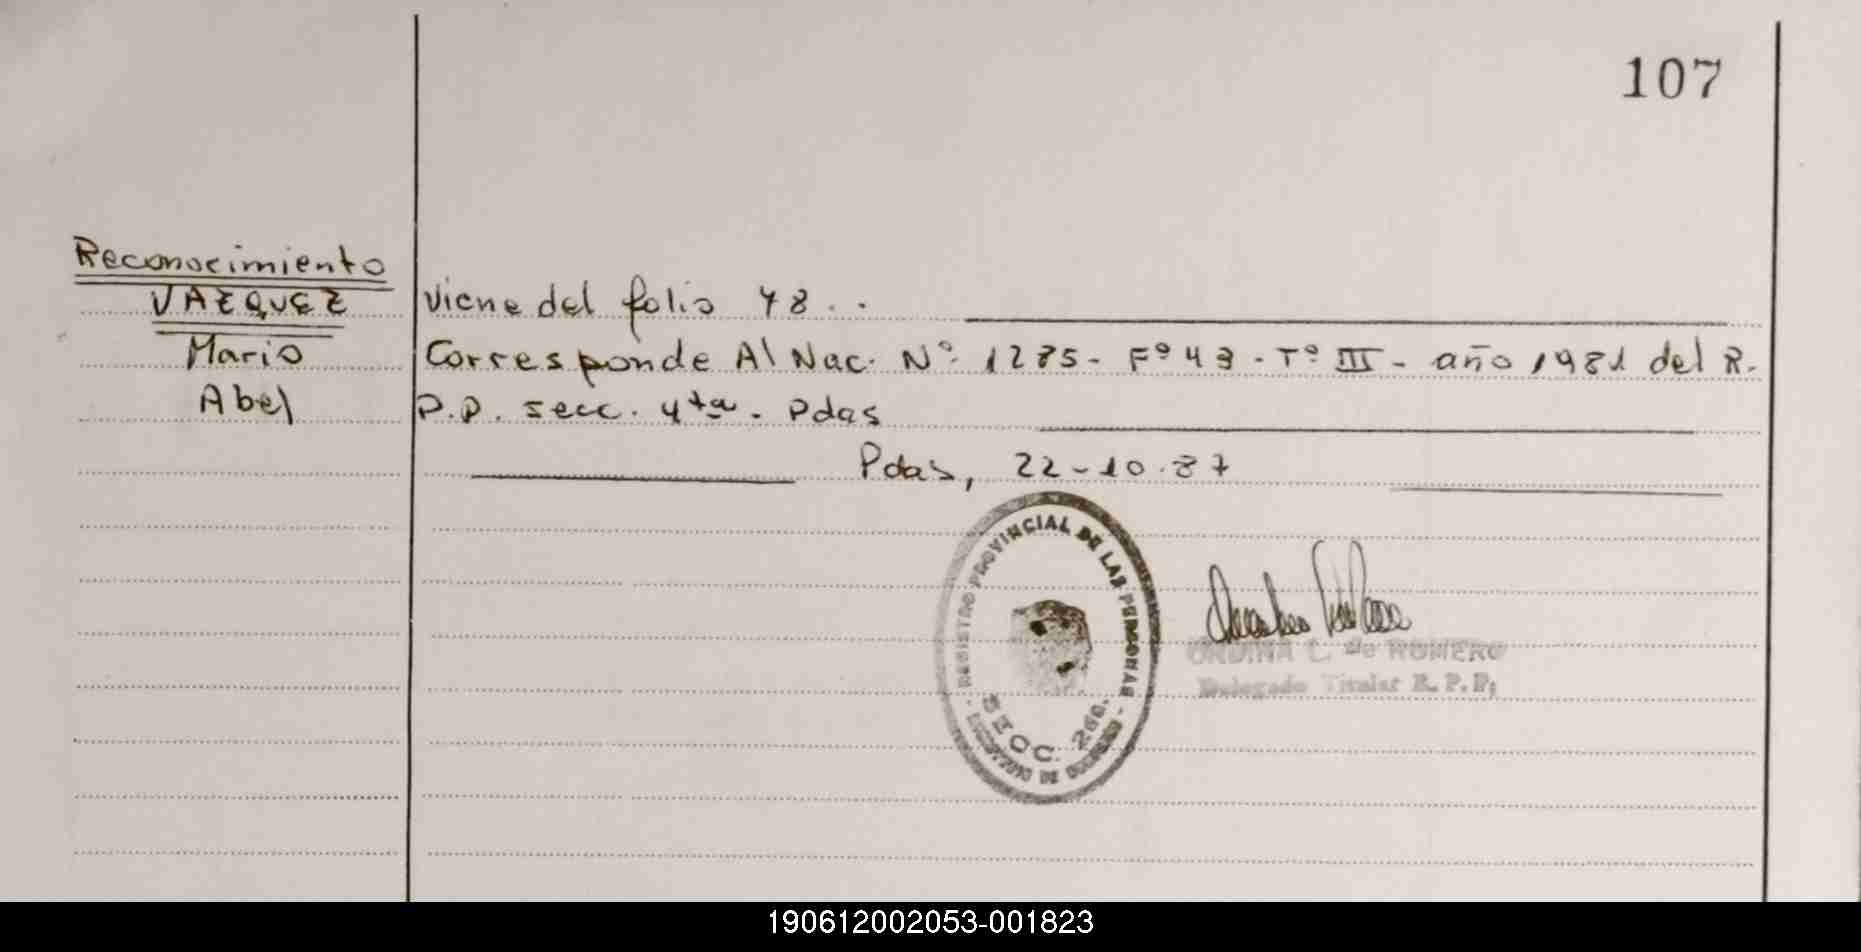 107
Reconocimiento
VAZQUEZ
Mario
Abel
viene del folio 48..
Corresponde Al Nac. Nº 1285- Fº 43 - Tº III - año 1981 del R.
P.P. secc. 4ta. Pdas
Pdas, 22-10.87
REGISTRO PROVINCIAL DE LAS PERSONAS
SECC. 260.
L. de ROMERO
Delegado Titular R.P.P.
190612002053-001823